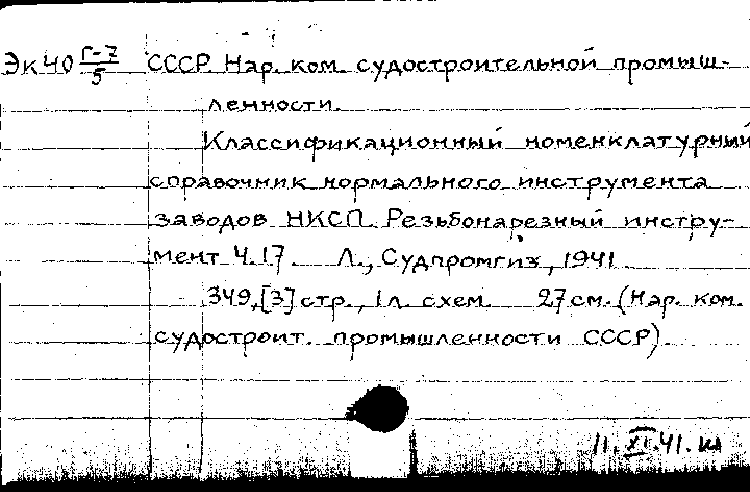 Эк40 Г-7/5 СССР Нар. ком. судостроительной промыш-
ленности.
Классификационный номенклатурный
справочник нормального инструмента
заводов НКСП. Резьбонарезный инстру-
мент Ч.17. Л., Судпромгиз, 1941.
349,[3] стр., 1 л. схем. 27 см. (Нар. ком.
судостроит. промышленности СССР).
11.XI.41. ш